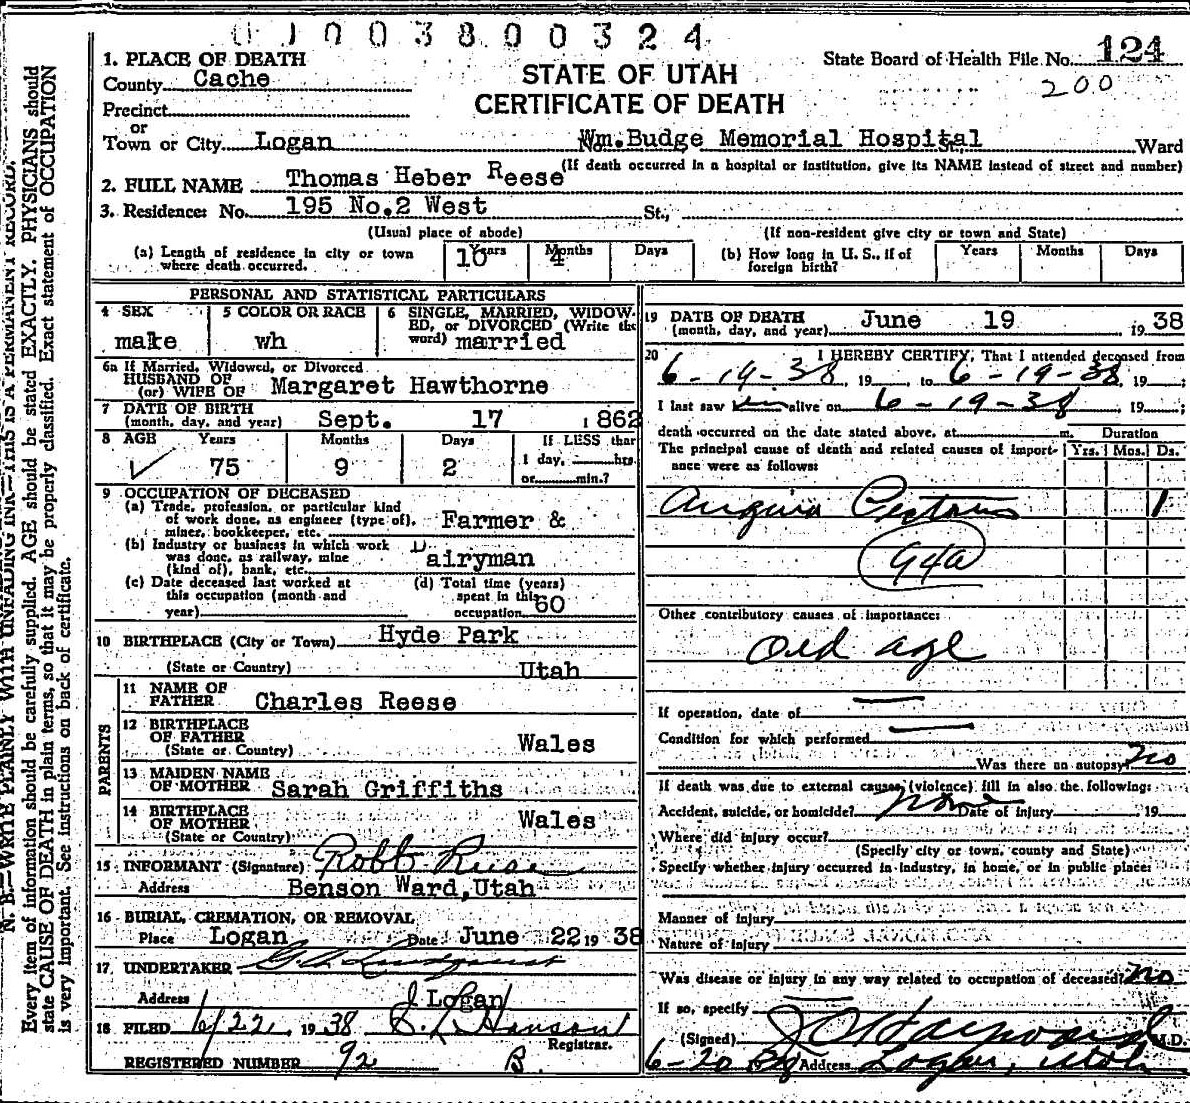 003800324
1. PLACE OF DEATH
State Board of Health File No. 124
County Cache
STATE OF UTAH
200
Precinct
CERTIFICATE OF DEATH
or
Town or City Logan No. Wm. Budge Memorial Hospital St., Ward
(If death occurred in a hospital or institution, give its NAME instead of street and number)
2. FULL NAME Thomas Heber Reese
3. Residence: No. 195 No.2 West St.,
(Usual place of abode) (If non-resident give city or town and State)
(a) Length of residence in city or town where death occurred. 10 Years 4 Months Days
(b) How long in U. S., if of foreign birth? Years Months Days
PERSONAL AND STATISTICAL PARTICULARS
4 SEX make
5 COLOR OR RACE wh
6 SINGLE, MARRIED, WIDOWED, or DIVORCED (Write the word) married
6a If Married, Widowed, or Divorced
HUSBAND OF
(or) WIFE OF Margaret Hawthorne
7 DATE OF BIRTH
(month, day, and year) Sept. 17 1862
8 AGE Years 75 Months 9 Days 2
If LESS than
1 day, hrs.
or min.?
9 OCCUPATION OF DECEASED
(a) Trade, profession, or particular kind
of work done, as engineer (type of),
miner, bookkeeper, etc. Farmer &
(b) Industry or business in which work
was done, as railway, mine
(kind of), bank, etc. Dairyman
(c) Date deceased last worked at
this occupation (month and
year)
(d) Total time (years)
spent in this
occupation 60
10 BIRTHPLACE (City or Town) Hyde Park
(State or Country) Utah
PARENTS
11 NAME OF
FATHER Charles Reese
12 BIRTHPLACE
OF FATHER
(State or Country) Wales
13 MAIDEN NAME
OF MOTHER Sarah Griffiths
14 BIRTHPLACE
OF MOTHER
(State or Country) Wales
15 INFORMANT (Signature) Robt Reese
Address Benson Ward, Utah
16 BURIAL, CREMATION, OR REMOVAL
Place Logan Date June 22 19 38
17 UNDERTAKER
Address Logan
18 FILED 6/22, 19 38 Hanson
Registrar.
REGISTERED NUMBER 92 B.
19 DATE OF DEATH
(month, day, and year) June 19 19 38
20 I HEREBY CERTIFY, That I attended deceased from
6-14-38, 19 to 6-19-38, 19 ;
I last saw him alive on 6-19-38, 19 ;
death occurred on the date stated above, at m.
Duration
The principal cause of death and related causes of importance were as follows:
Yrs. Mos. Ds.
Angina Pectoris 1
94a
Other contributory causes of importance:
Old age
If operation, date of —
Condition for which performed —
Was there an autopsy? no
If death was due to external causes (violence) fill in also the following:
Accident, suicide, or homicide? none Date of injury 19
Where did injury occur?
(Specify city or town, county and State)
Specify whether injury occurred in industry, in home, or in public place:
Manner of injury
Nature of injury
Was disease or injury in any way related to occupation of deceased? no
If so, specify
(Signed) Hayward M.D.
6-20 38 Address Logan, Utah
N. B.—WRITE PLAINLY WITH UNFADING INK—THIS IS A PERMANENT RECORD.
Every item of information should be carefully supplied. AGE should be stated EXACTLY. PHYSICIANS should
state CAUSE OF DEATH in plain terms, so that it may be properly classified. Exact statement of OCCUPATION
is very important. See instructions on back of certificate.